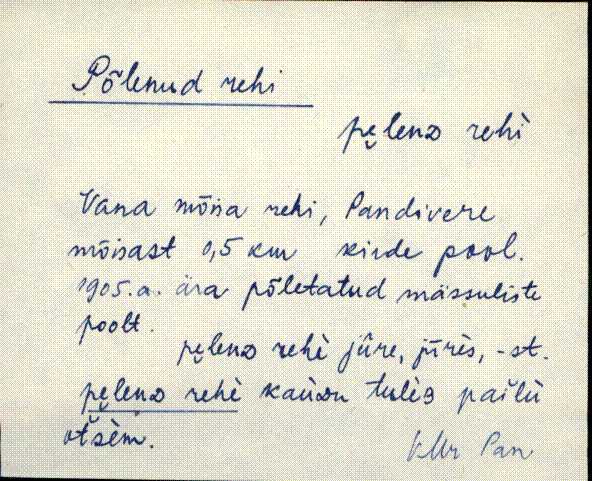 Põlenud rehi
pe̮lenᴅ rehì
Vana mõisa rehi, Pandivere
mõisast 0,5 km kirde pool.
1905.a. ära põletatud mässuliste
poolt.
pe̮lenᴅ rehè jū̀re, jū̀rès, -st.
pe̮lenᴅ rehè kaùᴅu tulèʙ pal̆lù
otsèm.
VMr Pan